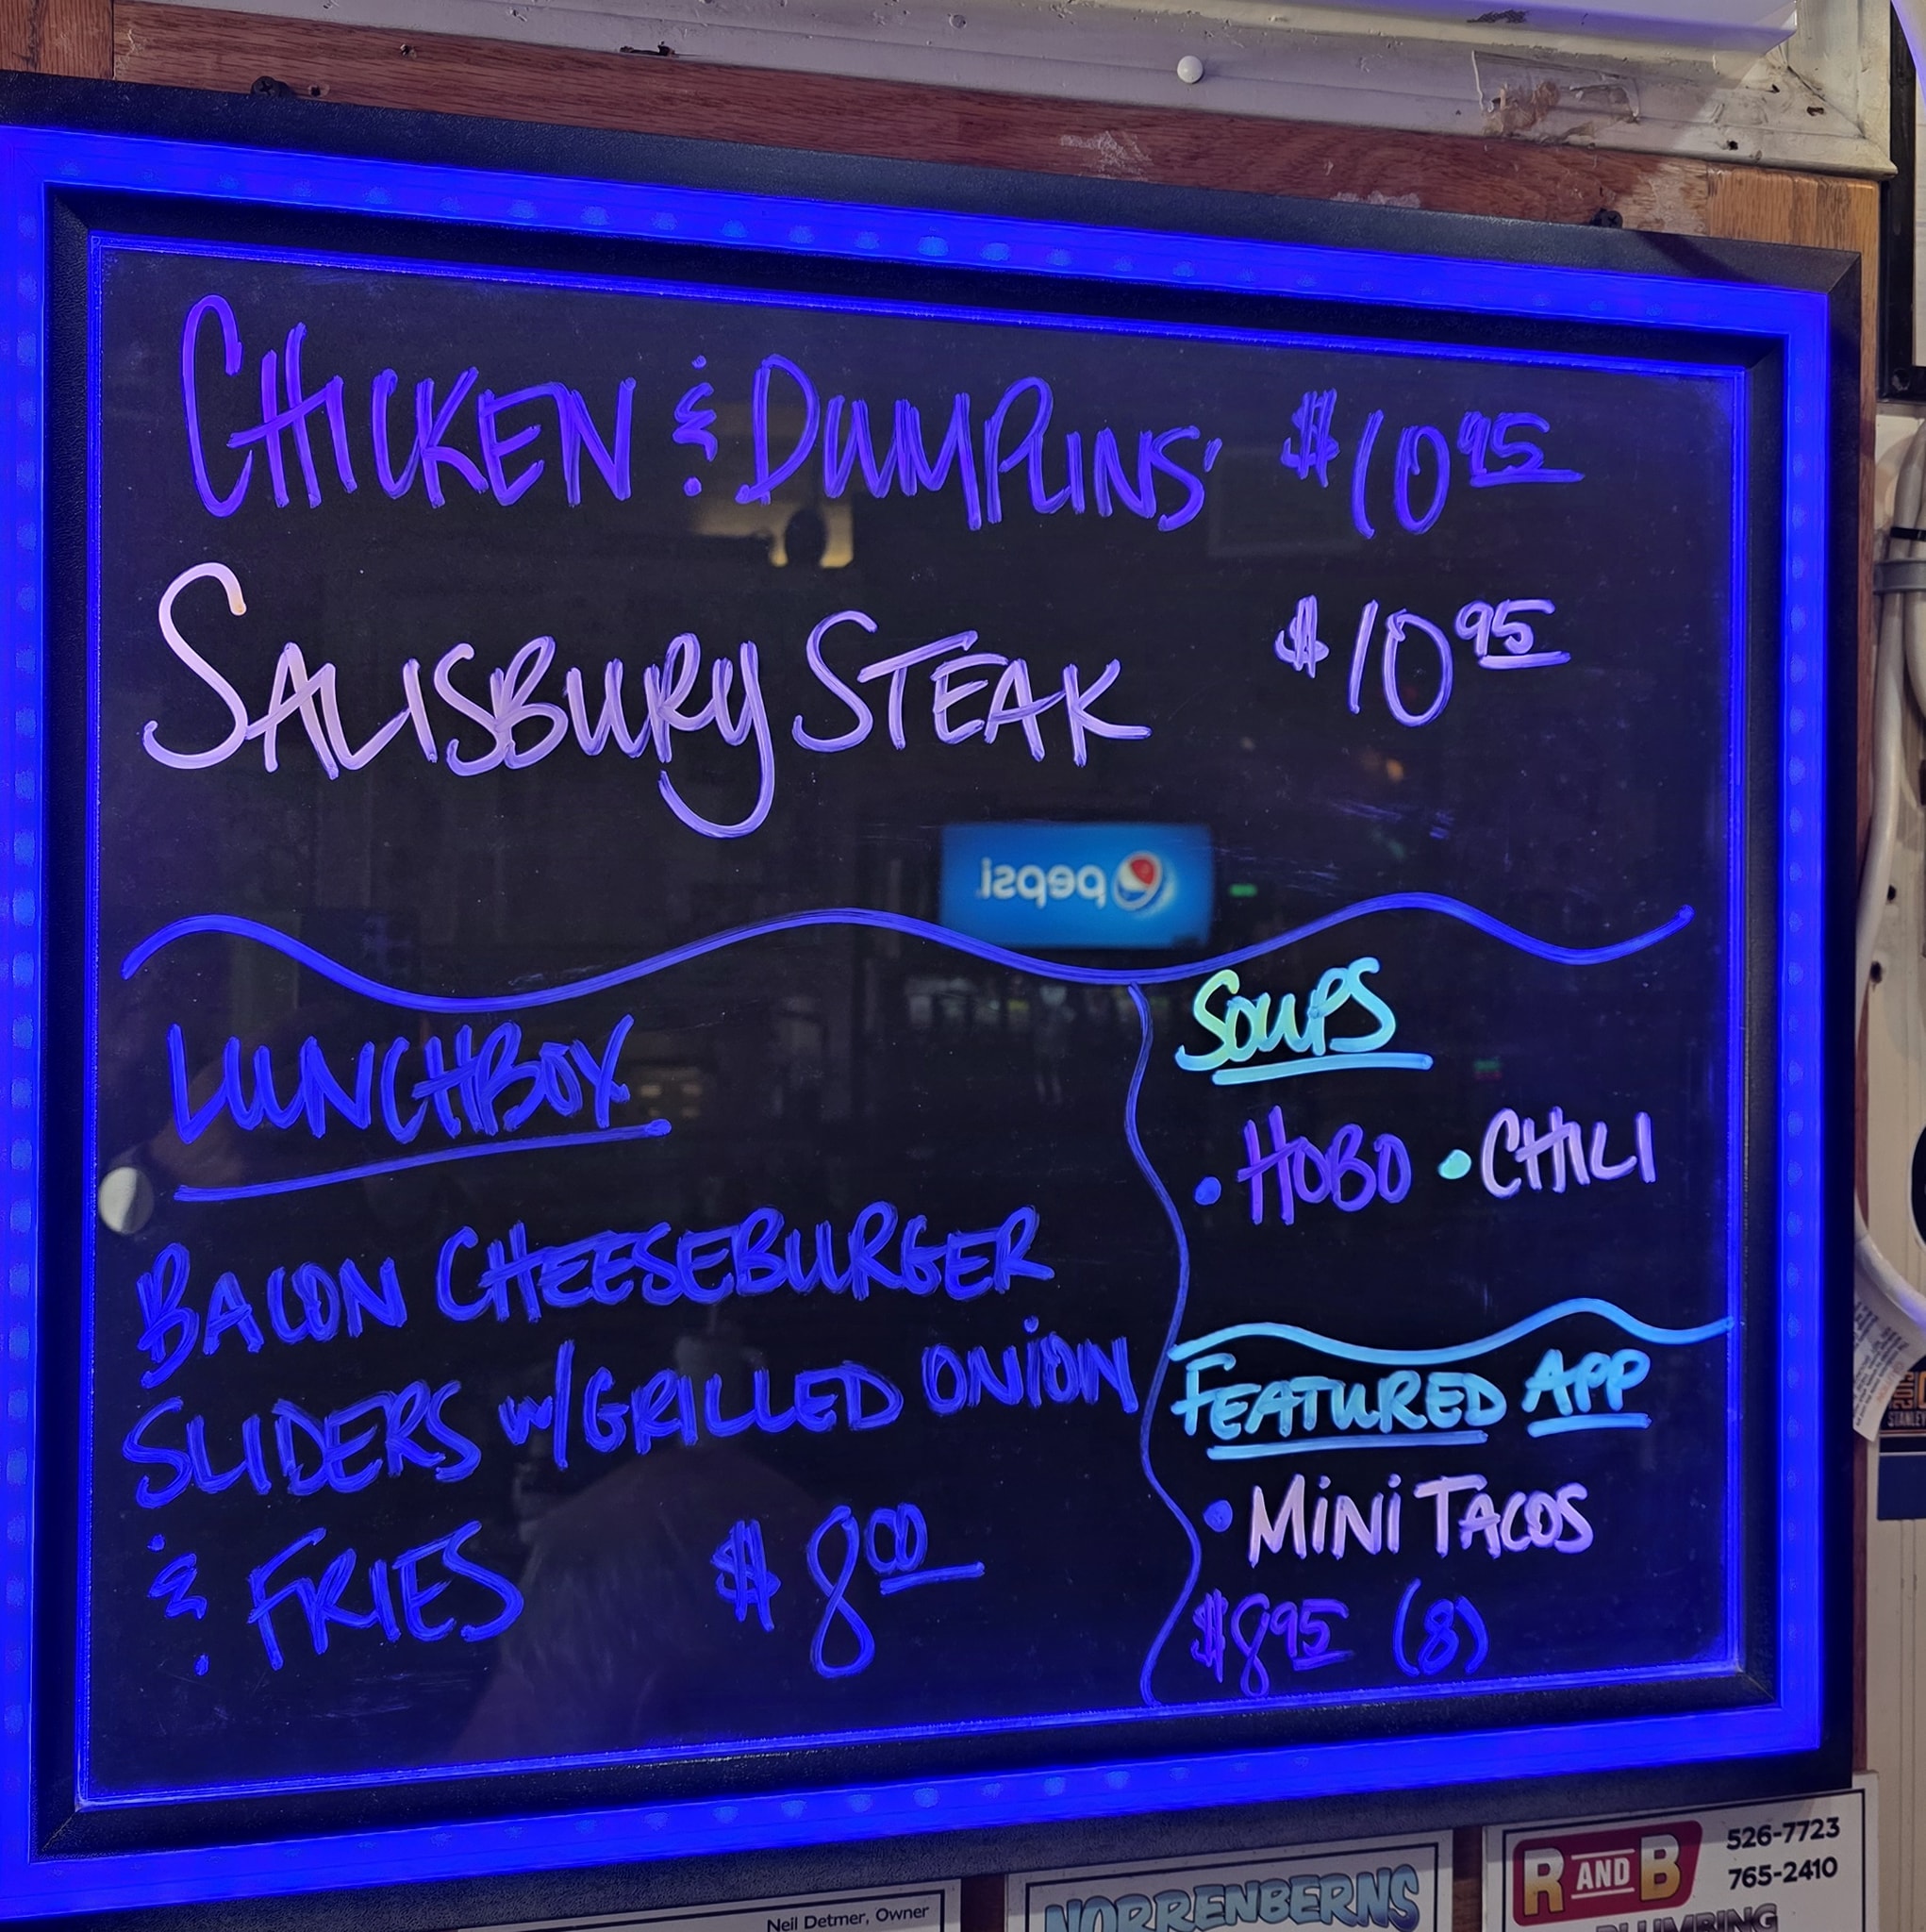 CHICKEN & DUMPLINS' $10.95
SALISBURY STEAK $10.95
pepsi
LUNCHBOX
BACON CHEESEBURGER
SLIDERS w/GRILLED ONION
& FRIES $8.00
SOUPS
• HOBO • CHILI
FEATURED APP
• MINI TACOS
$8.95 (8)
STANLEY
Neil Detmer, Owner
NORRENBERNS
R AND B
526-7723
765-2410
PLUMBING